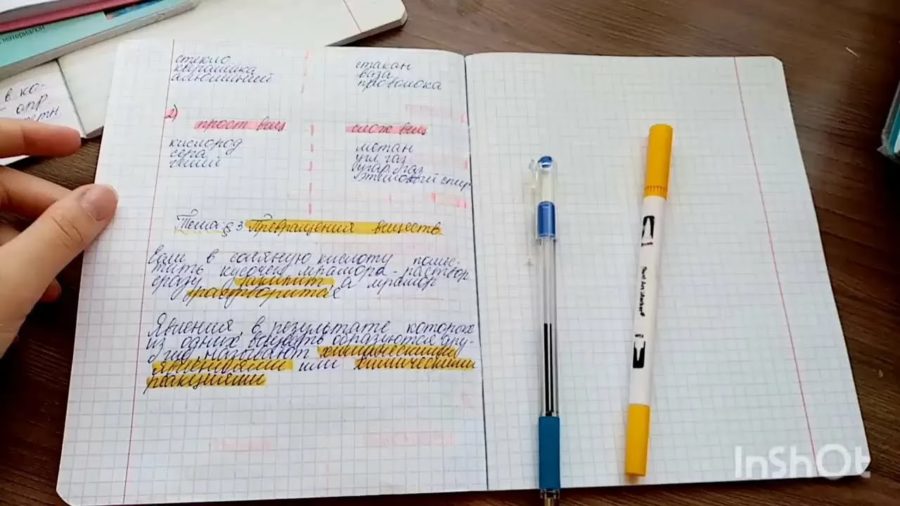 стекло
керамика
алюминий
стакан
ваза
проволока
2)
прост вещ
слож вещ
кислород
сера
метан
угл. газ
угар. газ
этиловый спир
Тема § 3 Превращения веществ
Если в соляную кислоту помес-
тить кусочек мрамора - раствор
сразу а мрамор
растворится
Явления, в результате которых
из одних веществ образуются дру-
гие называют химическими
явлениями или химическими
реакциями
в ко-
опр
InShOt